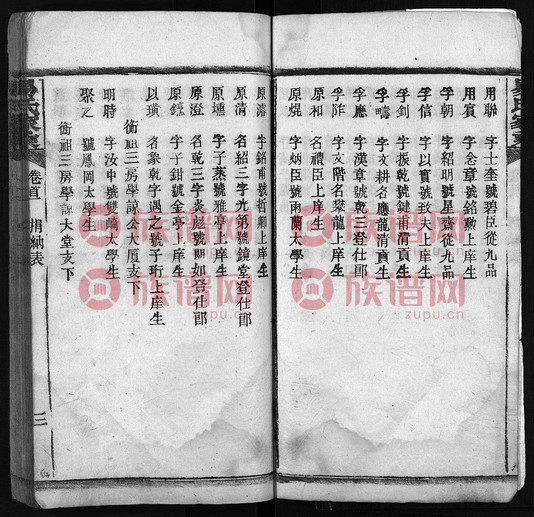 用聯 字士奎號碧臣從九品
用賓 字念章號銘勳上庠生
孚朝 字紹明號星齋從九品
孚信 字以實號孜夫上庠生
孚釗 字振乾號鍵甫渭貢生
孚疇 字文耕名應龍渭貢生
孚應 字漢章號乾三登仕郎
孚祚 字文階名榮龍上庠生
原和 名禮臣上庠生
原焜 字炳臣號雨蘭太學生
原濤 字銘甫號哲卿上庠生
原清 名紹三字光第號鏡堂登仕郎
原壎 字子蒸號雅亭上庠生
原澄 名乾三字炎彪號即如登仕郎
原鑣 字子鉗號金亭上庠生
以璜 名象乾字遇之號子珩上庠生
衞祖三房學諒公大廈支下
明時 字汝中號雙嶠太學生
聚之 號鳳岡太學生
衞祖三房學諒大堂支下
卷首 捐納表
三
族谱网
zupu.cn
族谱网
zupu.cn
族谱网
zupu.cn
族谱网
zupu.cn